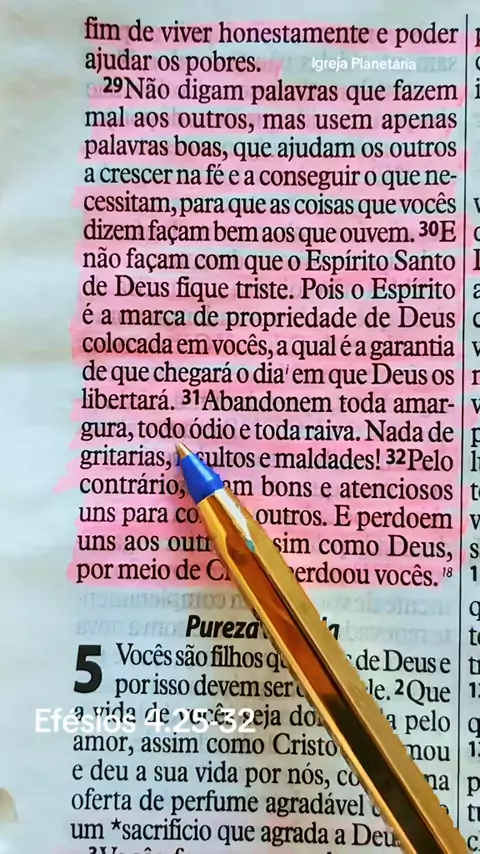 fim de viver honestamente e poder
ajudar os pobres.
Igreja Planetária
29Não digam palavras que fazem
mal aos outros, mas usem apenas
palavras boas, que ajudam os outros
a crescer na fé e a conseguir o que ne-
cessitam, para que as coisas que vocês
dizem façam bem aos que ouvem. 30E
não façam com que o Espírito Santo
de Deus fique triste. Pois o Espírito
é a marca de propriedade de Deus
colocada em vocês, a qual é a garantia
de que chegará o dia i em que Deus os
libertará. 31Abandonem toda amar-
gura, todo ódio e toda raiva. Nada de
gritarias, sultos e maldades! 32Pelo
contrário, am bons e atenciosos
uns para co outros. E perdoem
uns aos out sim como Deus,
por meio de C erdoou vocês. 18
Pureza
5 Vocês são filhos q de Deus e
por isso devem ser le. 2Que
a vida de vocês seja do a pelo
Efésios 4:25-32
amor, assim como Cristo mou
e deu a sua vida por nós, co na
oferta de perfume agradável
um *sacrifício que agrada a Deu